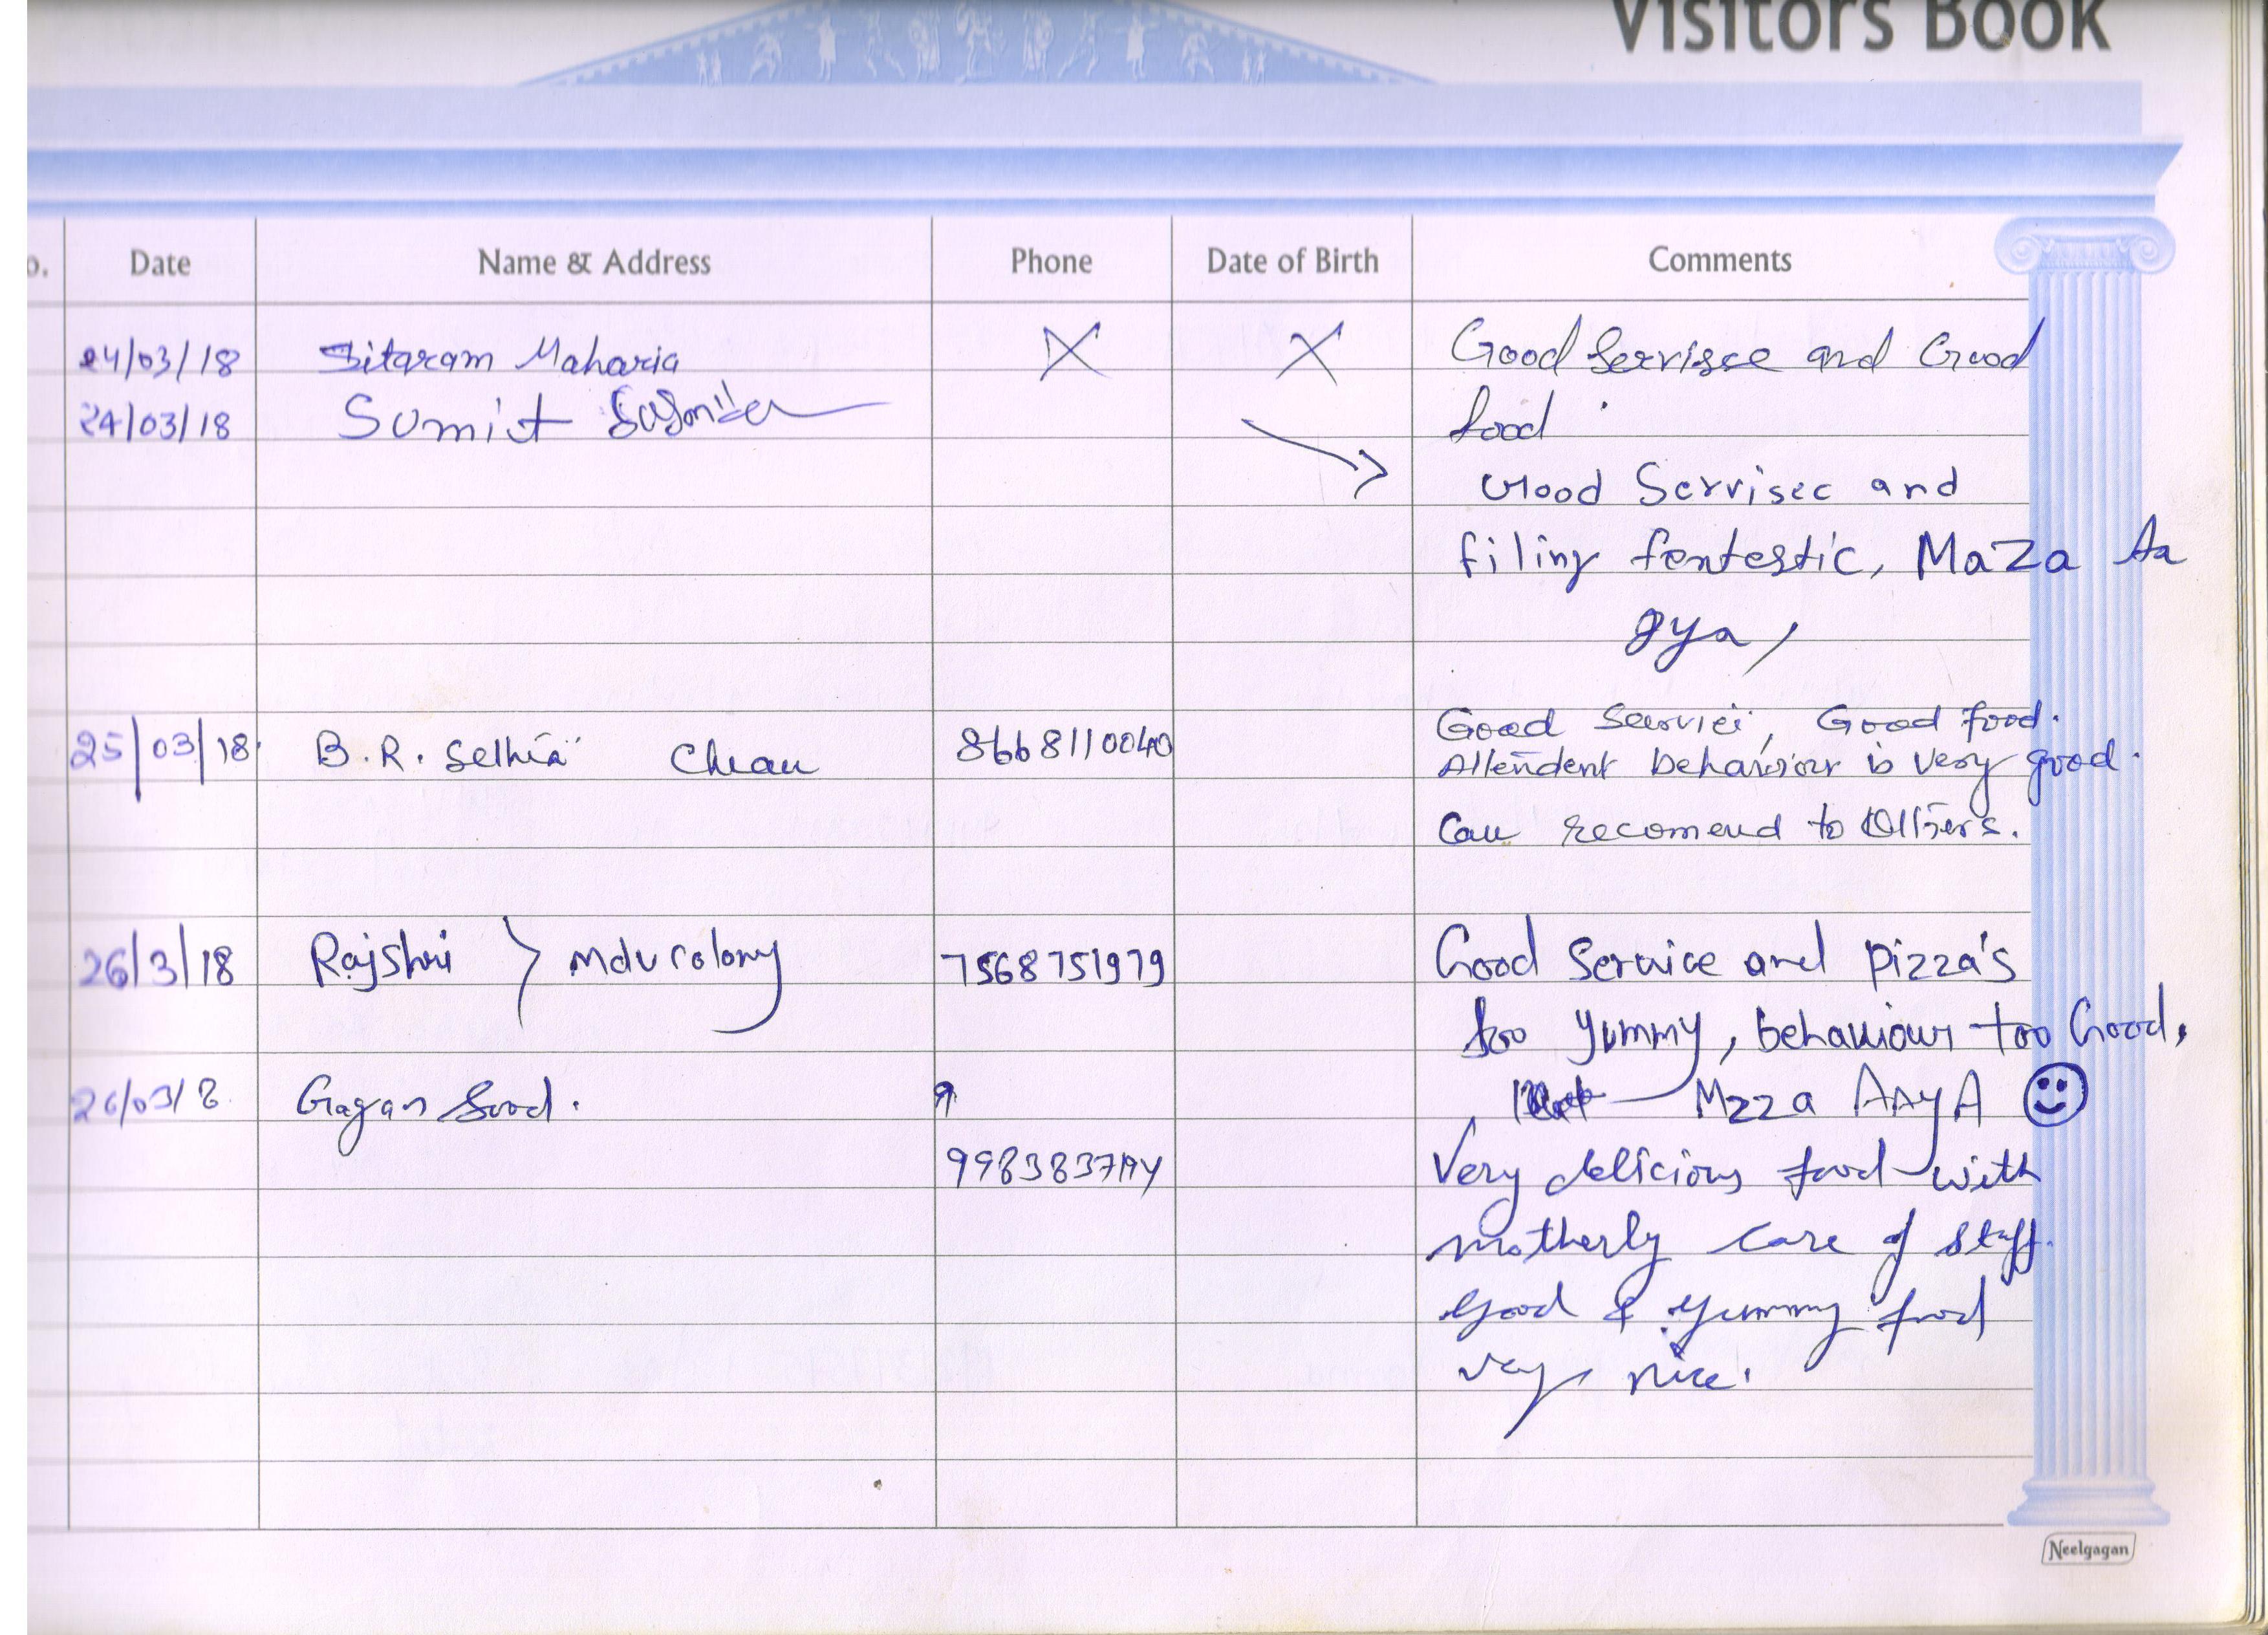 VISITORS BOOK
o. Date Name & Address Phone Date of Birth Comments
24/03/18 Sitaram Maharia X X Good Servisce and Good
24/03/18 Sumit food.
Good Servisec and
filing fentestic, Maza Aa
gya,
25/03/18 B.R. Sethia 8668110040 Good Servici, Good food.
Attendent behaviour is very good.
Can recomend to Others.
26/3/18 Rajshri mdv colony 7568751979 Good Service and pizza's
too yummy, behaviour too Good,
26/03/8 Gagan Sood. 9 Mzza AAyA
Very delicious food with
motherly care of staff.
Good & yummy food
very nice.
Neelgagan